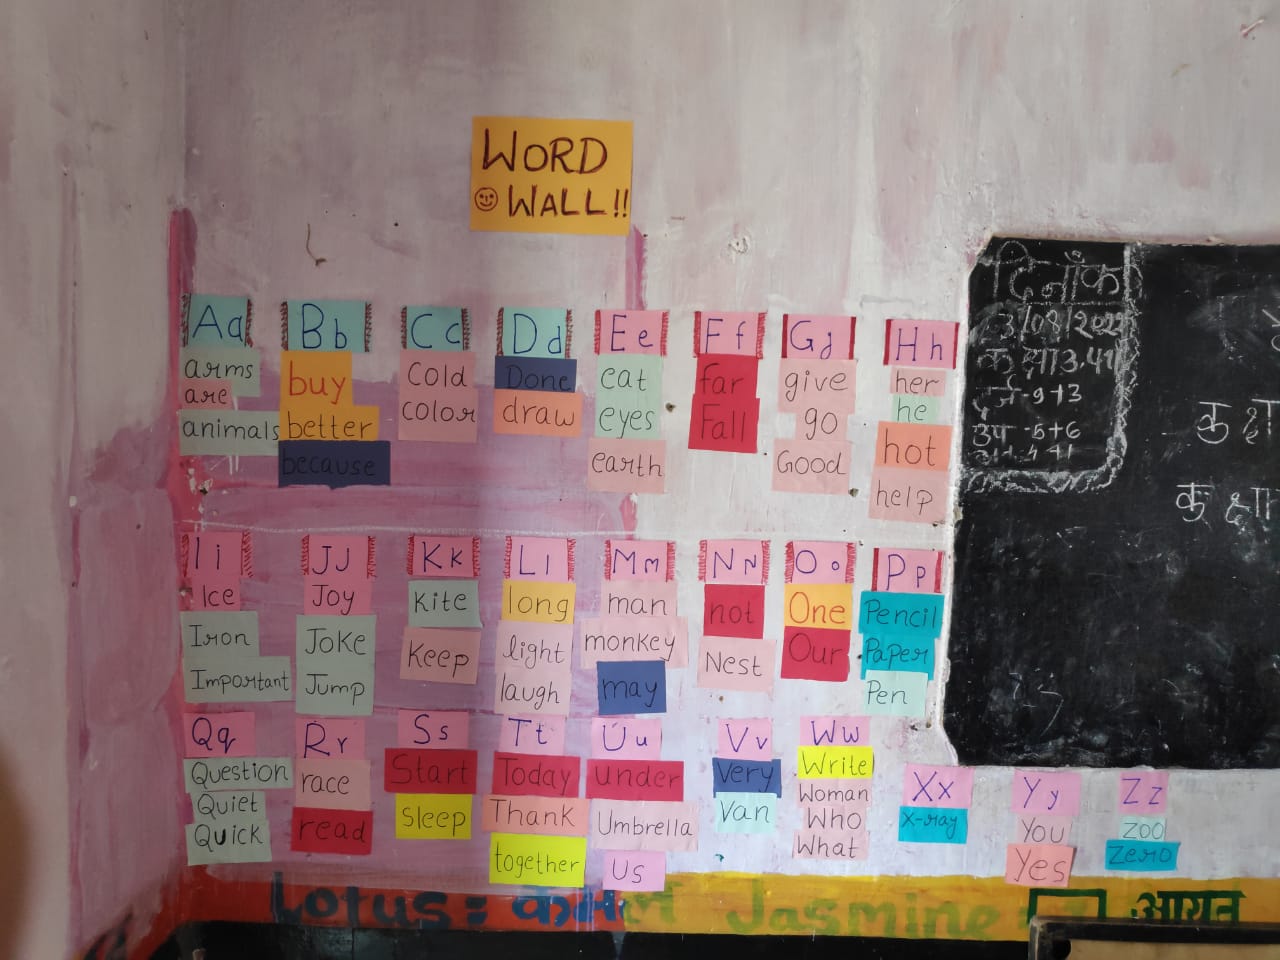 WORD
WALL!!
Aa
arms
are
animals
Bb
buy
better
because
Cc
Cold
color
Dd
Done
draw
Ee
eat
eyes
earth
Ff
far
Fall
Gg
give
go
Good
Hh
her
he
hot
help
Ii
Ice
Iron
Important
JJ
Joy
Joke
Jump
Kk
Kite
Keep
Ll
long
light
laugh
Mm
man
monkey
may
NN
not
Nest
Oo
One
Our
Pp
Pencil
Paper
Pen
Qq
Question
Quiet
Quick
Rr
race
read
Ss
Start
Sleep
Tt
Today
Thank
together
Uu
under
Umbrella
Us
Vv
Very
Van
Ww
Write
Woman
Who
What
Xx
X-ray
Yy
You
Yes
Zz
Zoo
Zero
दिनाँक
3/08/2022
कक्षा 3,4,5
दर्ज - 9+3
उप - 5+6
Lotus = कमल Jasmine =
आयत